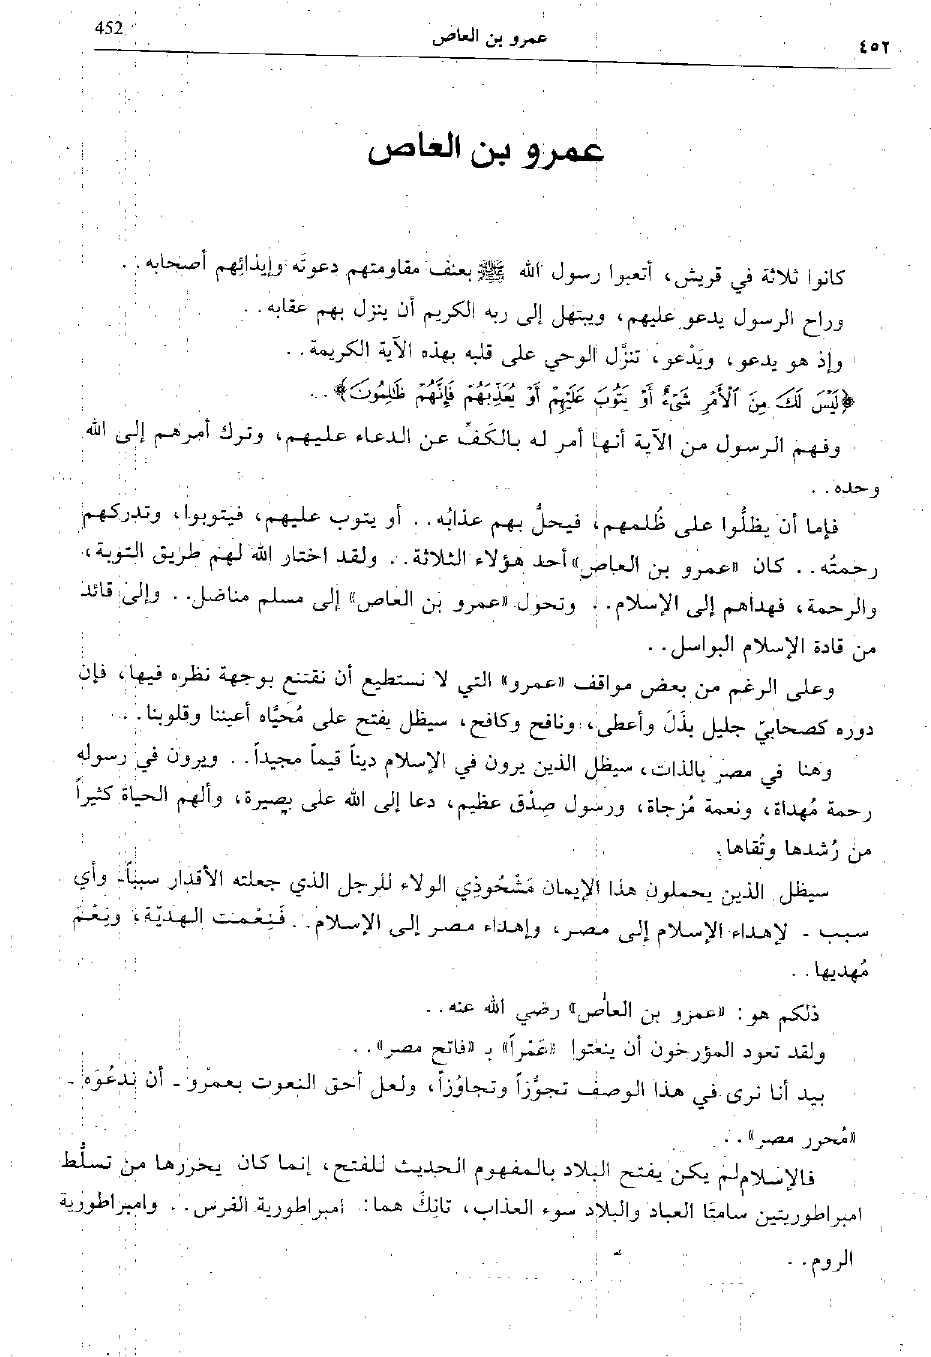 ٤٥٢ عمرو بن العاص 452
عمرو بن العاص
كانوا ثلاثة في قريش، أتعبوا رسول الله ﷺ بعنف مقاومتهم دعوتَه وإيذائِهم أصحابه..
وراح الرسول يدعو عليهم، ويبتهل إلى ربه الكريم أن ينزل بهم عقابه..
وإذ هو يدعو، ويَدْعو، تنزَّل الوحي على قلبه بهذه الآية الكريمة..
﴿لَيْسَ لَكَ مِنَ ٱلْأَمْرِ شَيْءٌ أَوْ يَتُوبَ عَلَيْهِمْ أَوْ يُعَذِّبَهُمْ فَإِنَّهُمْ ظَٰلِمُونَ﴾..
وفهم الرسول من الآية أنها أمر له بالكَفِّ عن الدعاء عليهم، وترك أمرهم إلى الله
وحده..
فإما أن يظلُّوا على ظُلمهم، فيحلُّ بهم عذابُه.. أو يتوب عليهم، فيتوبوا، وتدركهم
رحمتُه.. كان «عمرو بن العاص» أحد هؤلاء الثلاثة.. ولقد اختار الله لهم طريق التوبة،
والرحمة، فهداهم إلى الإسلام.. وتحول «عمرو بن العاص» إلى مسلم مناضل.. وإلى قائد
من قادة الإسلام البواسل..
وعلى الرغم من بعض مواقف «عمرو» التي لا نستطيع أن نقتنع بوجهة نظره فيها، فإن
دوره كصحابيّ جليل بذَلَ وأعطى، ونافح وكافح، سيظل يفتح على مُحيَّاه أعيننا وقلوبنا..
وهنا في مصر بالذات، سيظل الذين يرون في الإسلام ديناً قيماً مجيداً.. ويرون في رسوله
رحمة مُهداة، ونعمة مُزجاة، ورسول صِدْق عظيم، دعا إلى الله على بصيرة، وألهم الحياة كثيراً
من رُشدها وتُقاها.
سيظل الذين يحملون هذا الإيمان مَشْحُوذِي الولاء للرجل الذي جعلته الأقدار سبباً - وأي
سبب - لإهداء الإسلام إلى مصر، وإهداء مصر إلى الإسلام.. فَنِعْمت الهديّة، ونِعْمَ
مُهديها..
ذلكم هو: «عمرو بن العاص» رضي الله عنه..
ولقد تعود المؤرخون أن ينعتوا «عَمْراً» بـ «فاتح مصر»..
بيد أنا نرى في هذا الوصف تجوُّزاً وتجاوُزاً، ولعل أحق النعوت بعمرو - أن ندعُوَه -
«مُحرر مصر»..
فالإسلام لم يكن يفتح البلاد بالمفهوم الحديث للفتح، إنما كان يحررها من تسلُّط
امبراطوريتين سامتَا العباد والبلاد سوء العذاب، تانِكَ هما: امبراطورية الفرس.. وامبراطورية
الروم..